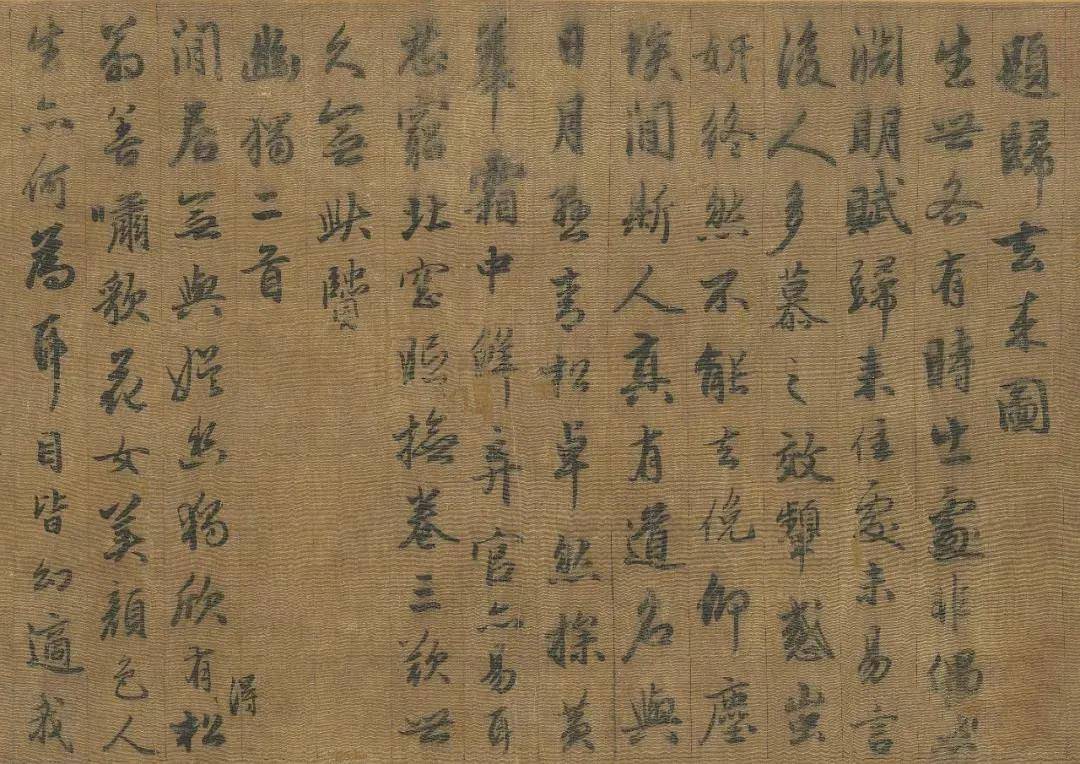 題歸去來圖
生世各有時出處非偶然
淵明賦歸來佳處未易言
後人多慕之效顰惑蚩
妍終然不能去俛仰塵
埃間斯人真有道名與
日月懸青松卓然操黃
華霜中鮮棄官亦易耳
忍窮北窓眠撫卷三歎世
久無此賢
幽獨二首
閒居無與娛幽獨欣有得松
翁善嘯歌花女美顏色人
生亦何為耳目皆幻適我